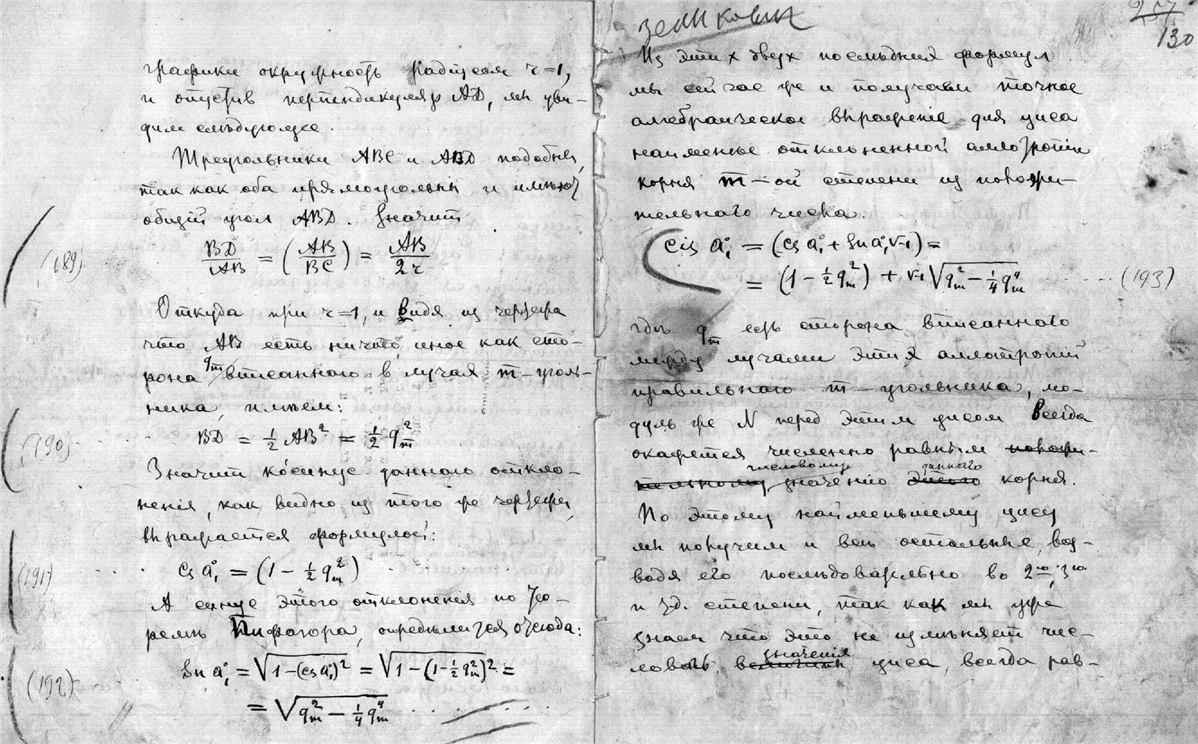 графики окружность радіусом r=1,
и опустив перпендикуляр AD, мы уви-
дим слѣдующее.
Треугольники ABC и ABD подобны,
так как оба прямоугольны и имѣют
общій угол ABD. Значит
(189) BD/AB = (AB/BC) = AB/2r
Откуда при r=1, и видя из чертежа
что AB есть ничто иное как сто-
рона qm вписанного в лучая m-уголь-
ника имѣем:
(190) . . BD = ½ AB² = ½ q²m
Значит косинус данного откло-
ненія, как видно из того же чертежа,
выражается формулой:
(191) . . cs a°₁ = (1 − ½ q²m)
А синус этого отклоненія по тео-
ремѣ Пифагора, опредѣлится отсюда:
(192) sn a°₁ = √1−(cs a°₁)² = √1−(1−½q²m)² =
= √q²m − ¼ q⁴m . . . . .
257
130
Из этих двух послѣдних формул
мы сейчас же и получаем точное
алгебраическое выражение для циса
наименѣе отклоненной аллотропіи
корня m-ой степени из
тельнаго числа:
cis a°₁ = (cs a°₁ + sn a°₁ √-1) =
= (1 − ½ q²m) + √-1 √q²m − ¼ q⁴m . . . (193)
гдѣ qm есть сторона вписанного
между лучами этих аллотропій
правильнаго m-угольника, мо-
дуль же N перед этим цисом всегда
окажется численно равным
числовому значению данного корня.
По этому наименьшему цису
мы получим и всѣ остальные, воз-
водя его послѣдовательно во 2ую, 3ю
и т.д. степени, так как мы уже
знаем что это не измѣняет чис-
ловыя значения циса, всегда рав-